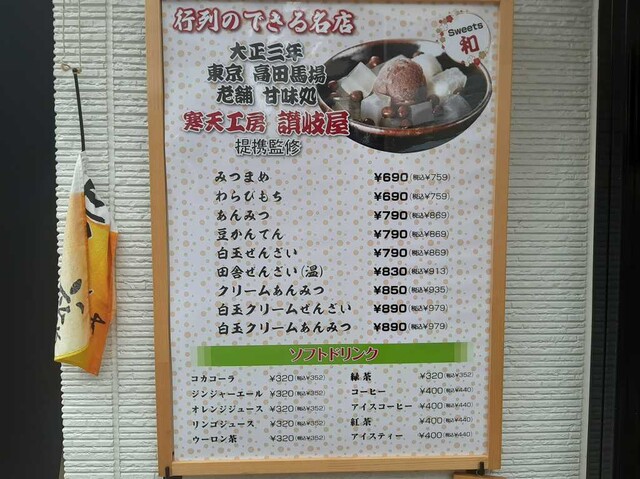 行列のできる名店
Sweets
和
大正三年
東京 高田馬場
老舗 甘味処
寒天工房 讃岐屋
提携監修
みつまめ ¥690(税込¥759)
わらびもち ¥690(税込¥759)
あんみつ ¥790(税込¥869)
豆かんてん ¥790(税込¥869)
白玉ぜんざい ¥790(税込¥869)
田舎ぜんざい(温) ¥830(税込¥913)
クリームあんみつ ¥850(税込¥935)
白玉クリームぜんざい ¥890(税込¥979)
白玉クリームあんみつ ¥890(税込¥979)
ソフトドリンク
コカコーラ ¥320(税込¥352)
ジンジャーエール ¥320(税込¥352)
オレンジジュース ¥320(税込¥352)
リンゴジュース ¥320(税込¥352)
ウーロン茶 ¥320(税込¥352)
緑茶 ¥320(税込¥352)
コーヒー ¥400(税込¥440)
アイスコーヒー ¥400(税込¥440)
紅茶 ¥400(税込¥440)
アイスティー ¥400(税込¥440)